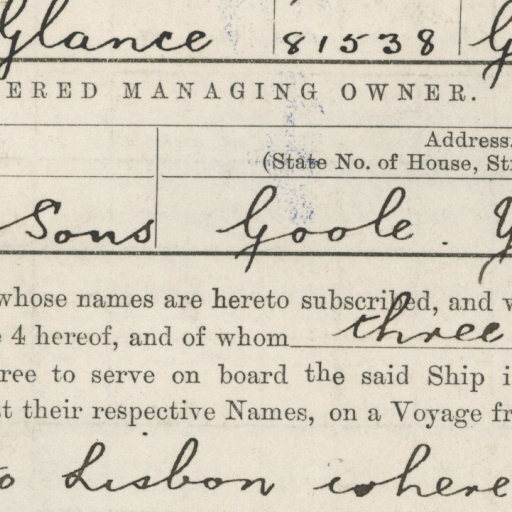 Glance 81538 G
ERED MANAGING OWNER.
Address.
(State No. of House, Str
Sons Goole. Y
whose names are hereto subscribed, and w
e 4 hereof, and of whom three
ree to serve on board the said Ship i
st their respective Names, on a Voyage fr
to Lisbon where